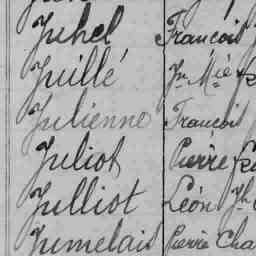 Juhel François
Juillé Jn Mie
Julienne François
Juliot Pierre
Julliot Léon Jh
Jumelais Pierre Cha